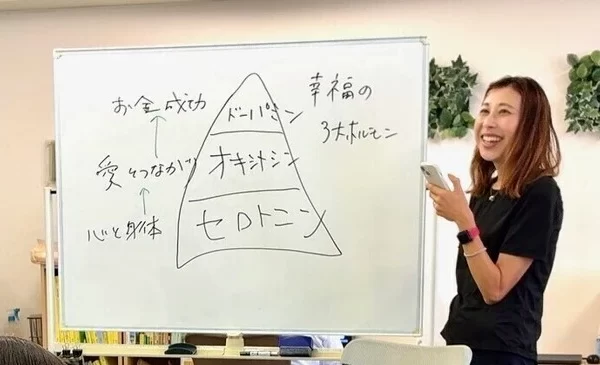 幸福の
3大ホルモン
お金 成功
ドーパミン
愛とつながり
オキシトシン
心と身体
セロトニン